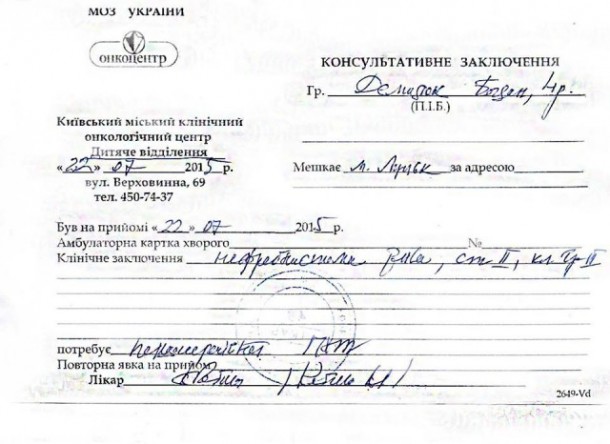 МОЗ УКРАЇНИ
онкоцентр
КОНСУЛЬТАТИВНЕ ЗАКЛЮЧЕННЯ
Гр. Демидюк Богдан, 4р.
(П.І.Б.)
Київський міський клінічний
онкологічний центр
Дитяче відділення
«22» 07 2015 р.
вул. Верховинна, 69
тел. 450-74-37
Мешкає м. Луцьк за адресою
Був на прийомі «22» 07 2015 р.
Амбулаторна картка хворого №
Клінічне заключення нефробластома, ст II, кл. гр II
потребує ПХТ
Повторна явка на прийом
Лікар
2649-Vd